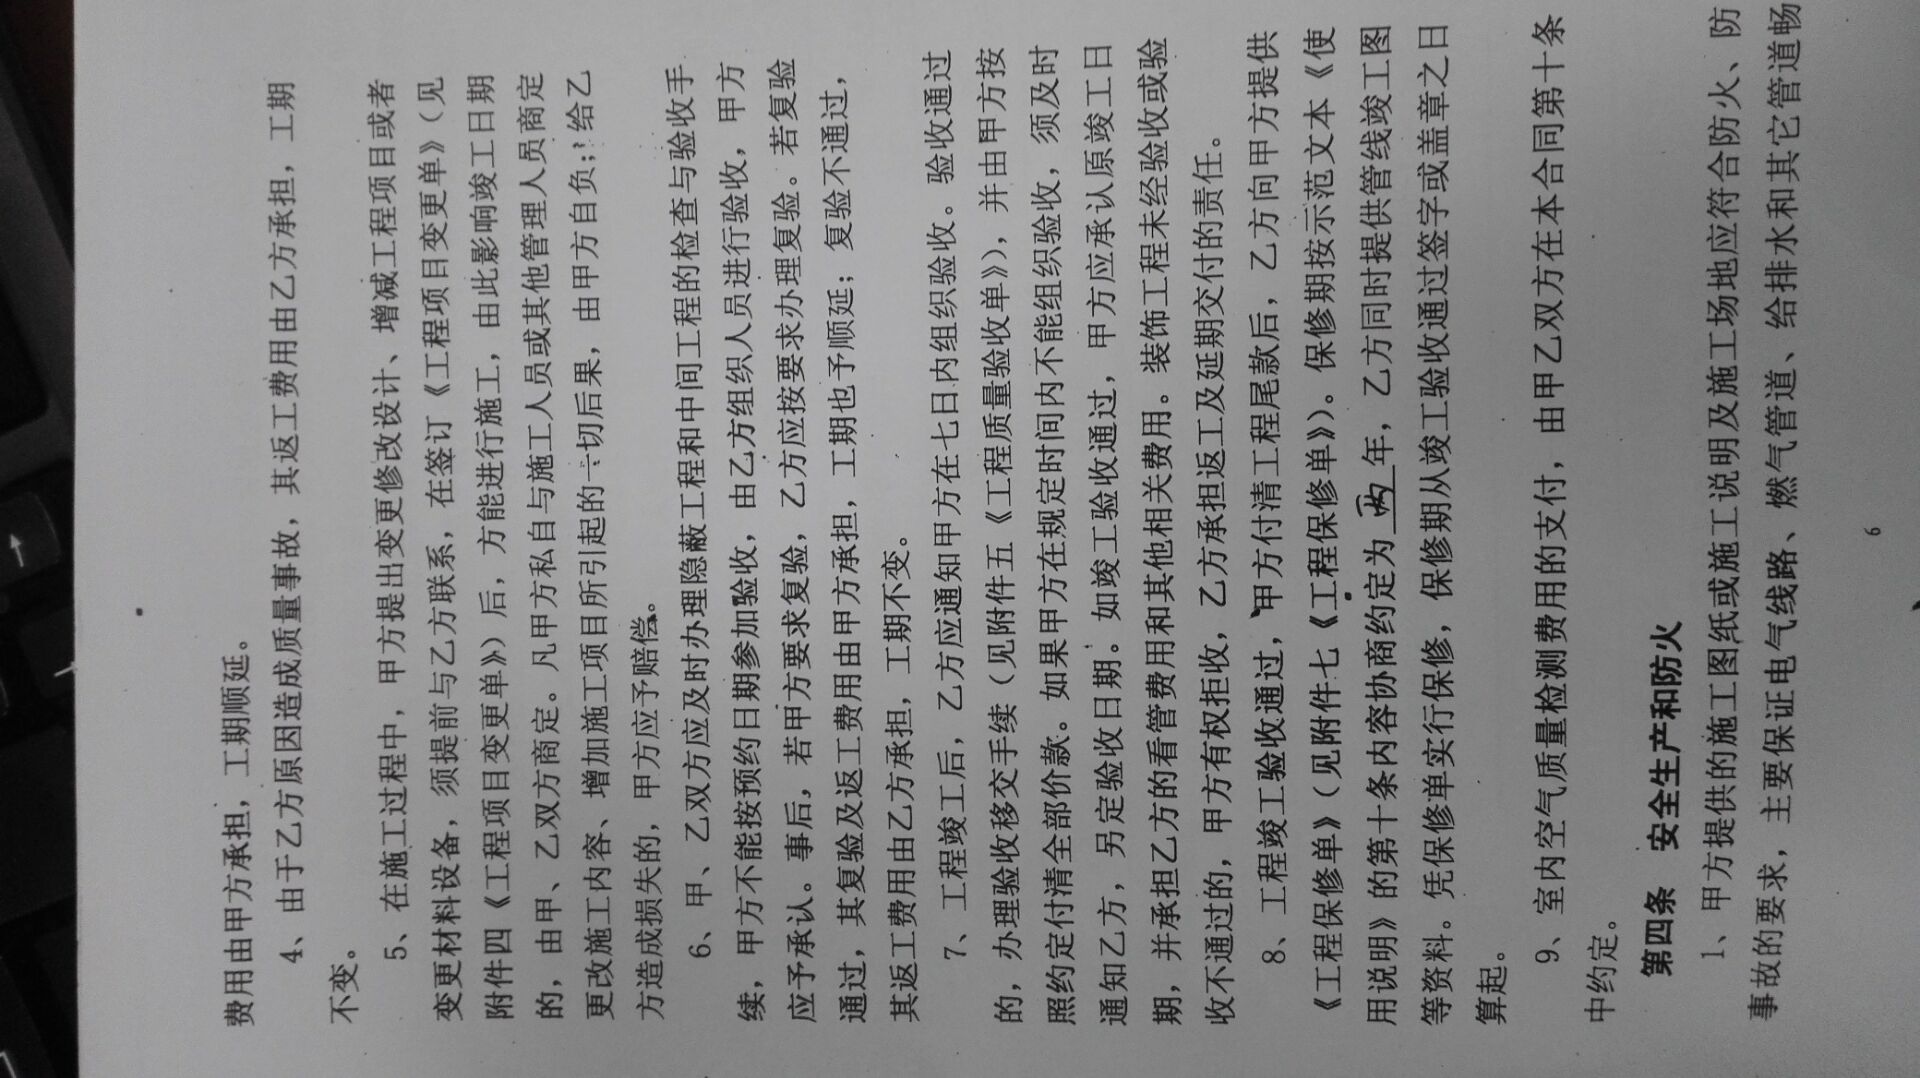 费用由甲方承担，工期顺延。
4、由于乙方原因造成质量事故，其返工费用由乙方承担，工期
不变。
5、在施工过程中，甲方提出变更修改设计、增减工程项目或者
变更材料设备，须提前与乙方联系，在签订《工程项目变更单》（见
附件四《工程项目变更单》）后，方能进行施工，由此影响竣工日期
的，由甲、乙双方商定。凡甲方私自与施工人员或其他管理人员商定
更改施工内容、增加施工项目所引起的一切后果，由甲方自负；给乙
方造成损失的，甲方应予赔偿。
6、甲、乙双方应及时办理隐蔽工程和中间工程的检查与验收手
续，甲方不能按预约日期参加验收，由乙方组织人员进行验收，甲方
应予承认。事后，若甲方要求复验，乙方应按要求办理复验。若复验
通过，其复验及返工费用由甲方承担，工期也予顺延；复验不通过，
其返工费用由乙方承担，工期不变。
7、工程竣工后，乙方应通知甲方在七日内组织验收。验收通过
的，办理验收移交手续（见附件五《工程质量验收单》），并由甲方按
照约定付清全部价款。如果甲方在规定时间内不能组织验收，须及时
通知乙方，另定验收日期。如竣工验收通过，甲方应承认原竣工日
期，并承担乙方的看管费用和其他相关费用。装饰工程未经验收或验
收不通过的，甲方有权拒收，乙方承担返工及延期交付的责任。
8、工程竣工验收通过，甲方付清工程尾款后，乙方向甲方提供
《工程保修单》（见附件七《工程保修单》）。保修期按示范文本《使
用说明》的第十条内容协商约定为 两 年，乙方同时提供管线竣工图
等资料。凭保修单实行保修，保修期从竣工验收通过签字或盖章之日
算起。
9、室内空气质量检测费用的支付，由甲乙双方在本合同第十条
中约定。
第四条 安全生产和防火
1、甲方提供的施工图纸或施工说明及施工场地应符合防火、防
事故的要求，主要保证电气线路、燃气管道、给排水和其它管道畅
6